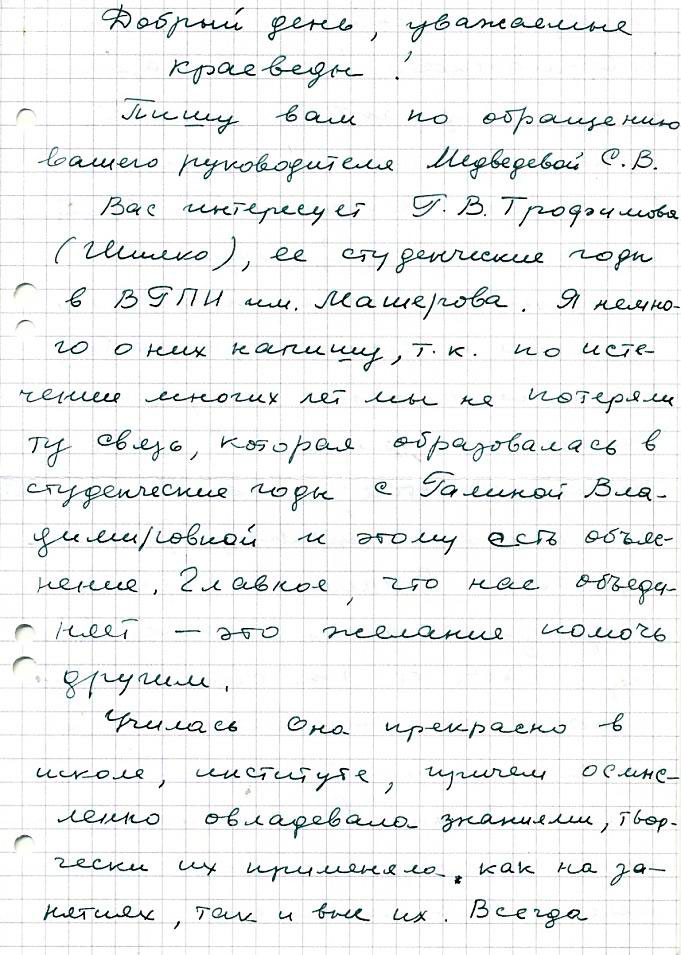 Добрый день, уважаемые
краеведы!
Пишу вам по обращению
вашего руководителя Медведевой С.В.
Вас интересует Г.В. Трофимова
(Шилко), ее студенческие годы
в ВГПИ им. Машерова. Я немно-
го о них напишу, т.к. по исте-
чении многих лет мы не потеряли
ту связь, которая образовалась в
студенческие годы с Галиной Вла-
димировной и этому есть объяс-
нение. Главное, что нас объеди-
няет — это желание помочь
другим.
Училась она прекрасно в
школе, институте, причем осмыс-
ленно овладевала знаниями, твор-
чески их применяла, как на за-
нятиях, так и вне их. Всегда